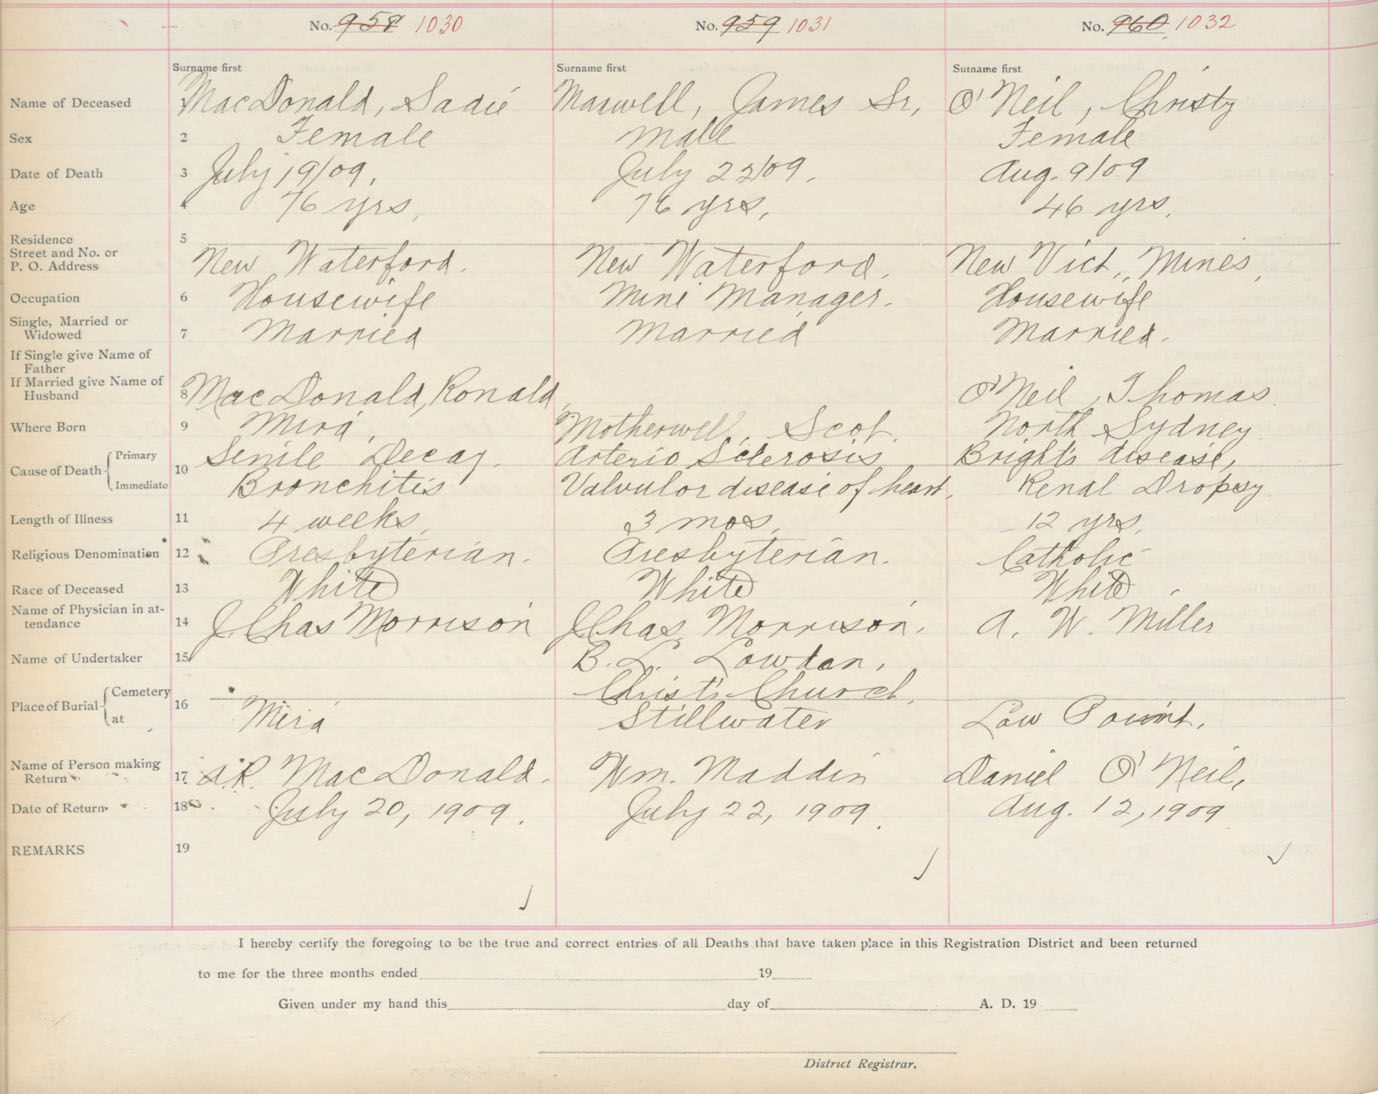 No. 958 1030 No. 959 1031 No. 960 1032
Surname first Surname first Surname first
Name of Deceased 1 MacDonald, Sadie Maxwell, James Sr, O'Neil, Christy
Sex 2 Female Male Female
Date of Death 3 July 19/09, July 22/09. Aug. 9/09
Age 4 76 yrs, 76 yrs, 46 yrs,
Residence 5
Street and No. or
P. O. Address New Waterford. New Waterford. New Vict. Mines,
Occupation 6 Housewife Mine Manager. Housewife
Single, Married or
Widowed 7 Married Married Married.
If Single give Name of
Father
If Married give Name of
Husband 8 MacDonald, Ronald, O'Neil, Thomas.
Where Born 9 Mira, Motherwell, Scot. North Sydney
Cause of Death Primary 10 Senile Decay. Arterio Sclerosis Bright's disease,
Immediate Bronchitis Valvulor disease of heart, Renal Dropsy.
Length of Illness 11 4 weeks, 3 mos, 12 yrs,
Religious Denomination 12 Presbyterian. Presbyterian. Catholic
Race of Deceased 13 White White White
Name of Physician in at-
tendance 14 J. Chas Morrison J. Chas Morrison. A. W. Miller
Name of Undertaker 15 B. L. Lowdan,
Place of Burial Cemetery 16 Christ's Church,
at Mira Stillwater Low Point,
Name of Person making
Return 17 A.R. MacDonald. Wm. Maddin Daniel O'Neil,
Date of Return 18 July 20, 1909. July 22, 1909. Aug. 12, 1909
REMARKS 19
I hereby certify the foregoing to be the true and correct entries of all Deaths that have taken place in this Registration District and been returned
to me for the three months ended 19
Given under my hand this day of A. D. 19
District Registrar.